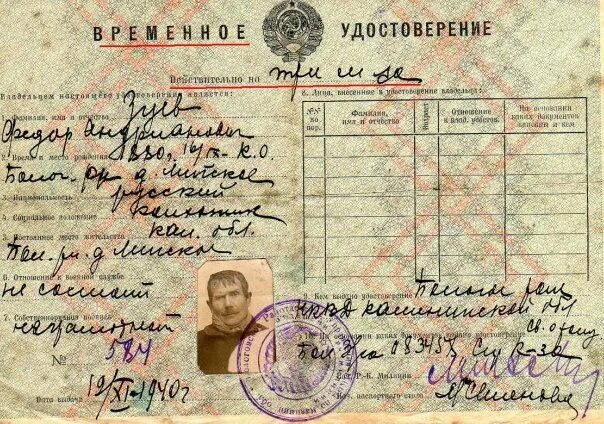 ВРЕМЕННОЕ УДОСТОВЕРЕНИЕ
Действительно по три м-ца
Владельцем настоящего удостоверения является:
1. Фамилия, имя и отчество Зуев
Федор Андрианович
2. Время и место рождения 1880, 16/IX - К.О.
Болог. р-н д. Липское
3. Национальность русский
4. Социальное положение колхозник
5. Постоянное место жительства кал. обл.
Бол. р-н д. Липское
6. Отношение к военной службе
не состоит
7. Собственноручная подпись
неграмотный
№ 584
Дата выдачи 19/XI-1940 г
8. Лица, внесенные в удостоверение владельца:
№№ по пор.
Фамилия, имя и отчество
Возраст
Отношение к влад. удостов.
На основании каких документов вписан и кем
9. Кем выдано удостоверение Бологов. рай
НКВД калининской обл
10. На основании каких документов выдано удостоверение
Нач. Р.-К. Милиции
Нач. паспортного стола